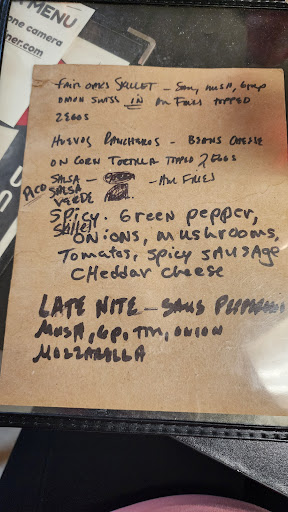 MENU
one camera
ner.com
FAIR OAKS SKILLET - SAUS, MUSH, GPEP
ONION SWISS IN AM FRIES TOPPED
2 EGGS
HUEVOS RANCHEROS - BEANS CHEESE
ON CORN TORTILLA TOPPED 2 EGGS
SALSA - - AM FRIES
PICO SALSA
VERDE
Spicy. Green pepper,
Skillet ONIONS, MUSHROOMS,
Tomatoes, Spicy SAUSAGE
CHeddar CHeese
LATE NITE - SAUS
MUSH, GP, TM, ONION
MOZZARALLA